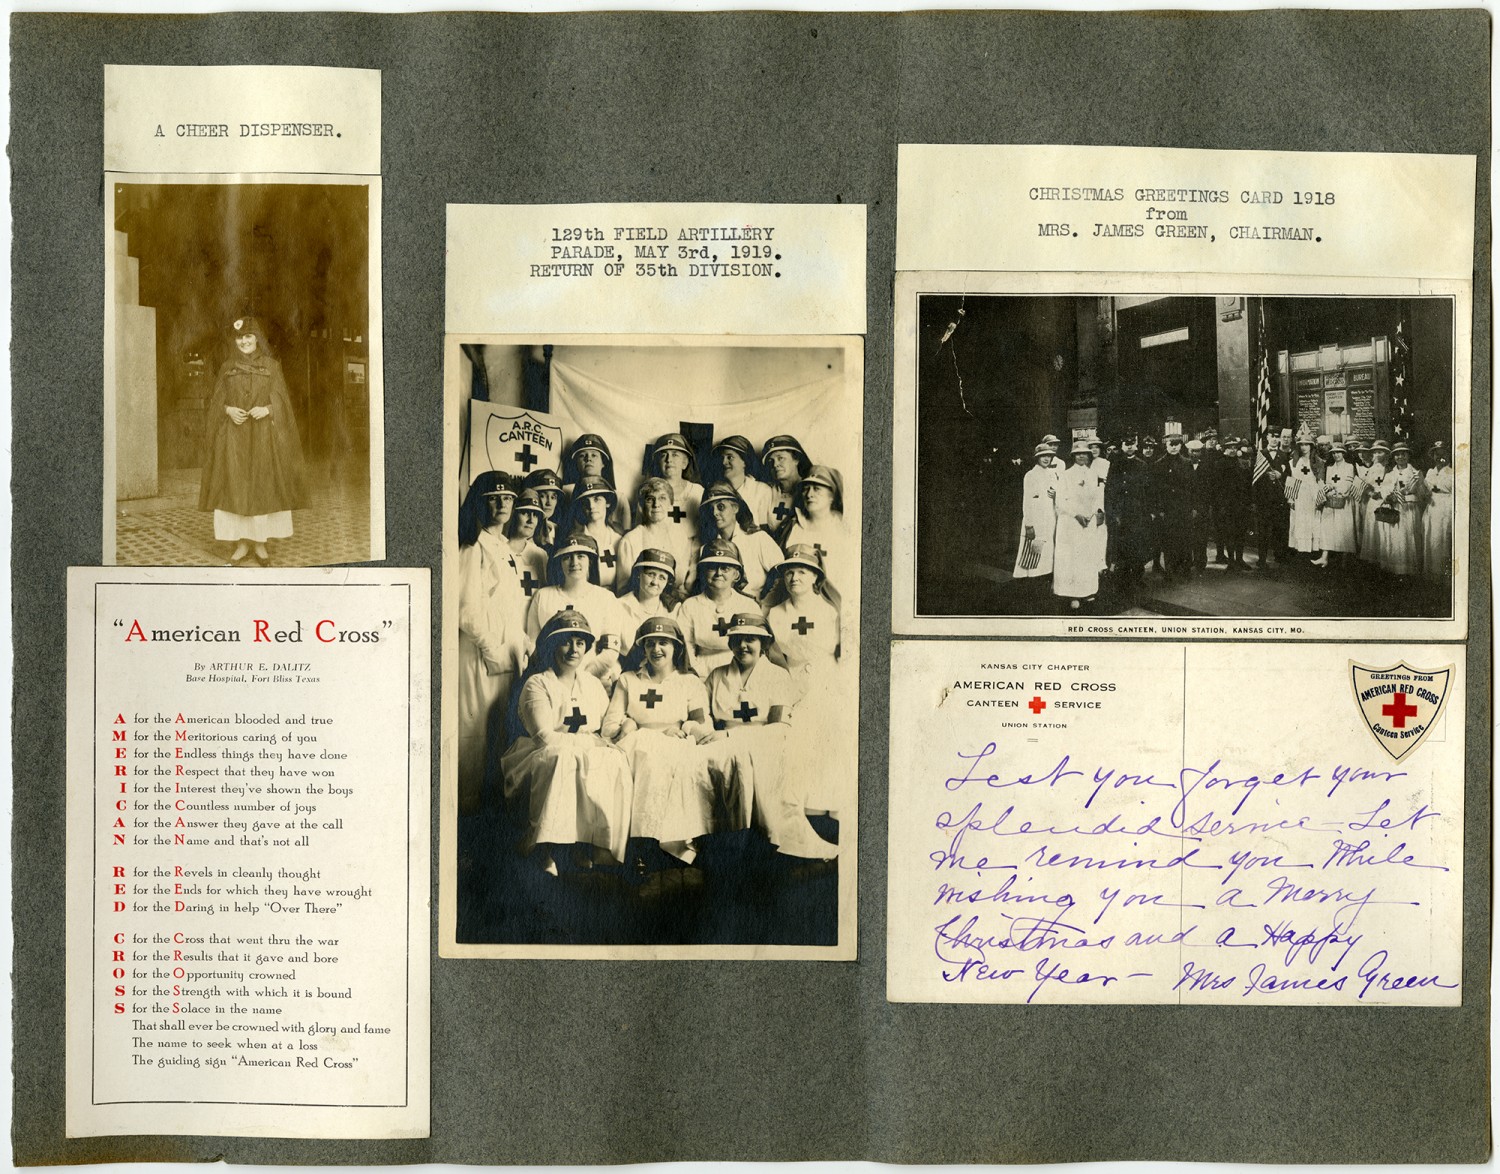 A CHEER DISPENSER.
"American Red Cross"
By ARTHUR E. DALITZ
Base Hospital, Fort Bliss Texas
A for the American blooded and true
M for the Meritorious caring of you
E for the Endless things they have done
R for the Respect that they have won
I for the Interest they've shown the boys
C for the Countless number of joys
A for the Answer they gave at the call
N for the Name and that's not all
R for the Revels in cleanly thought
E for the Ends for which they have wrought
D for the Daring in help "Over There"
C for the Cross that went thru the war
R for the Results that it gave and bore
O for the Opportunity crowned
S for the Strength with which it is bound
S for the Solace in the name
That shall ever be crowned with glory and fame
The name to seek when at a loss
The guiding sign "American Red Cross"
129th FIELD ARTILLERY
PARADE, MAY 3rd, 1919.
RETURN OF 35th DIVISION.
A.R.C.
CANTEEN
CHRISTMAS GREETINGS CARD 1918
from
MRS. JAMES GREEN, CHAIRMAN.
BUREAU
RED CROSS CANTEEN, UNION STATION, KANSAS CITY, MO.
KANSAS CITY CHAPTER
AMERICAN RED CROSS
CANTEEN SERVICE
UNION STATION
GREETINGS FROM
AMERICAN RED CROSS
Canteen Service
Lest you forget your
splendid service - Let
me remind you While
wishing you a Merry
Christmas and a Happy
New Year - Mrs James Green